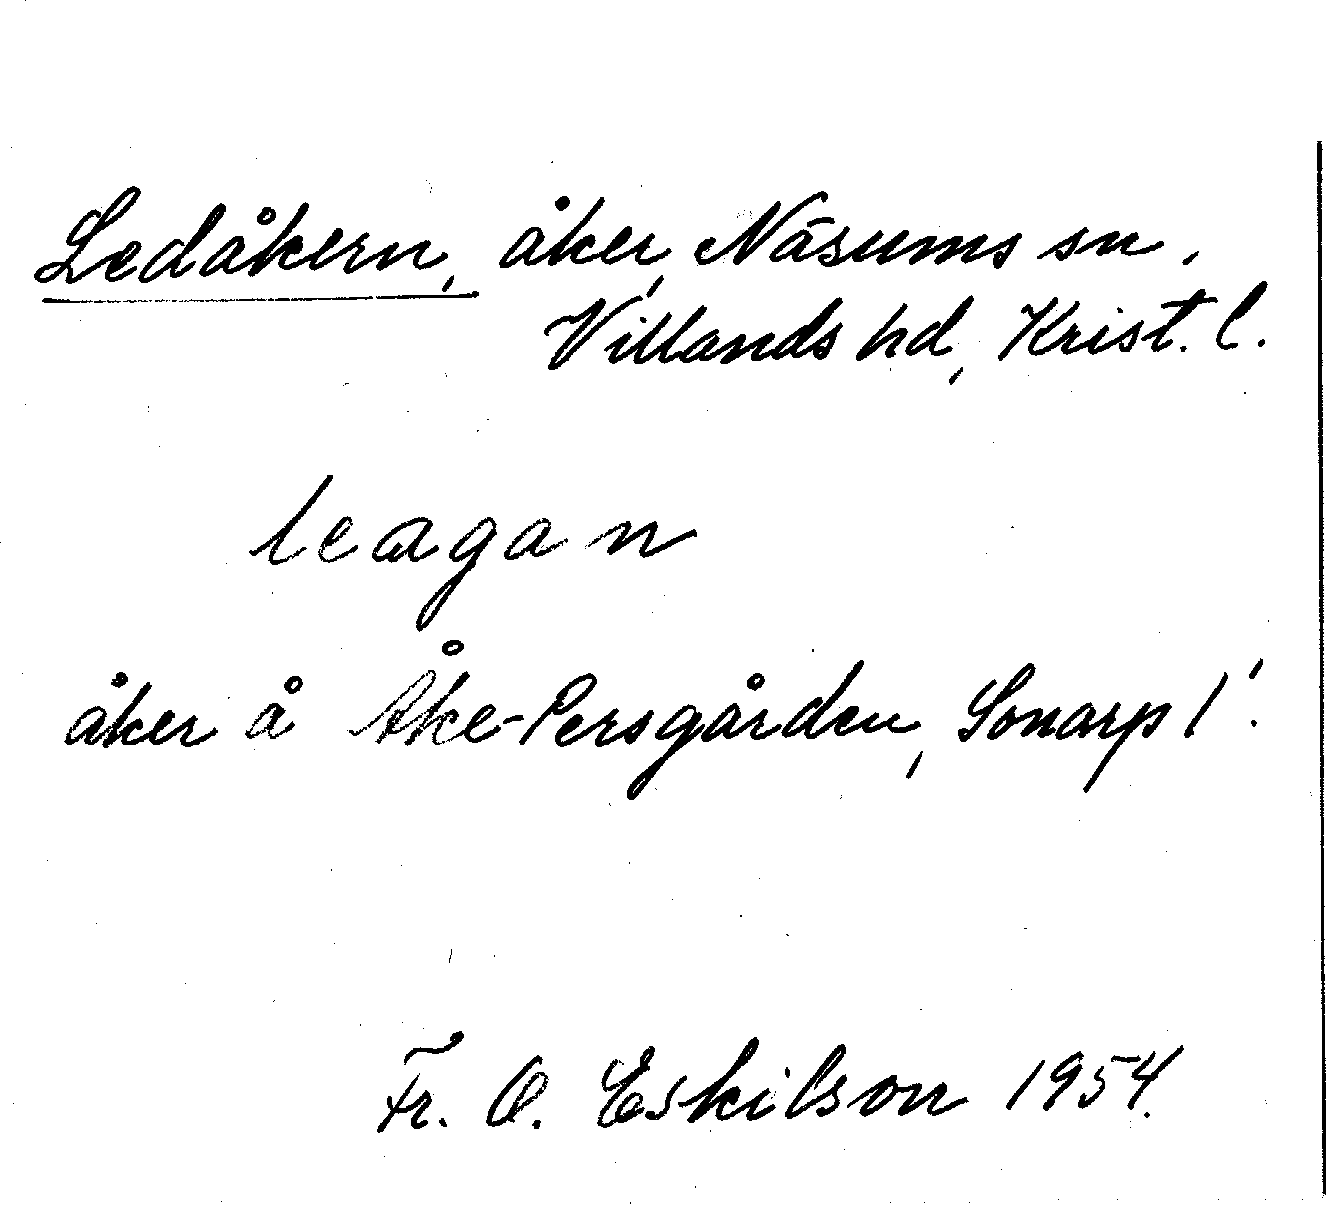 Ledåkern, åker, Näsums sn.
Villands hd, Krist. l.
leagan
åker å Åke-Persgården, Sonarp 1!
Fr. O. Eskilson 1954.